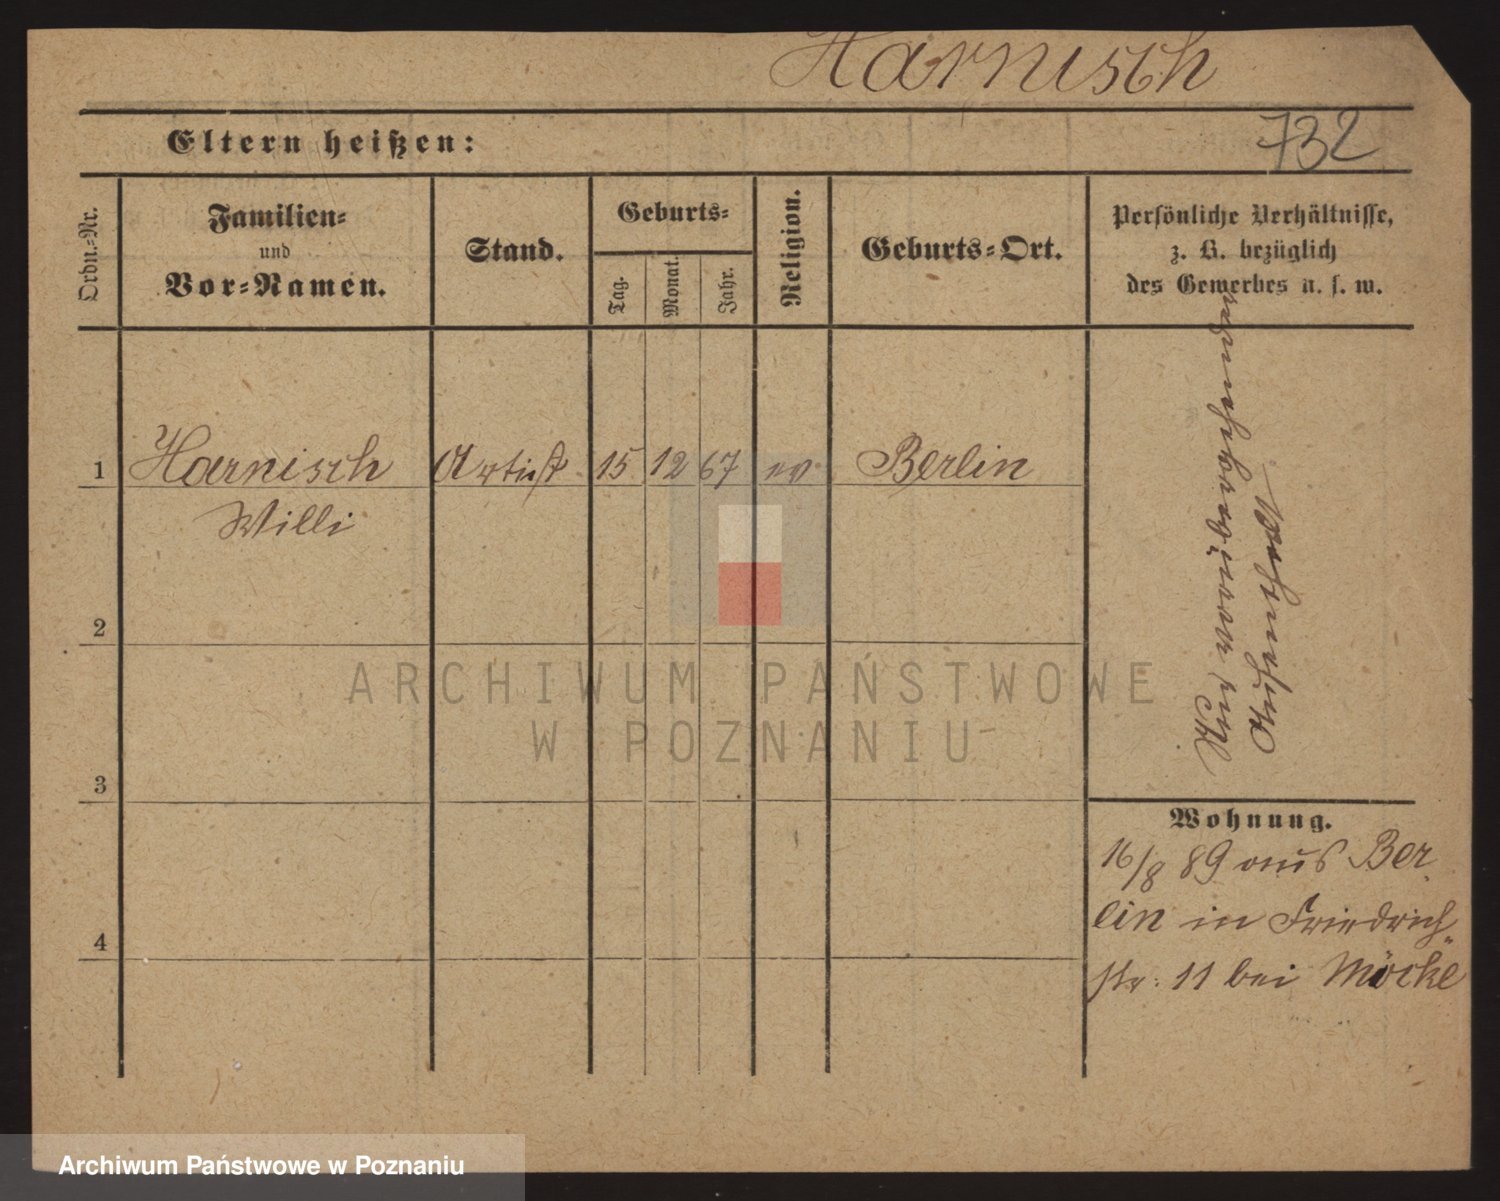 Harnisch
Eltern heißen:
732
Ordn.-Nr.
Familien-
und
Vor-Namen.
Stand.
Geburts-
Tag.
Monat.
Jahr.
Religion.
Geburts-Ort.
Persönliche Verhältnisse,
z. B. bezüglich
des Gewerbes u. s. w.
1 Harnisch Artist 15 12 67 ev Berlin
Willi
2
3
4
Wohnung.
16/8 89 aus Ber
lin in Friedrich"
str. 11 bei Möcke
ARCHIWUM PAŃSTWOWE
W POZNANIU
Archiwum Państwowe w Poznaniu